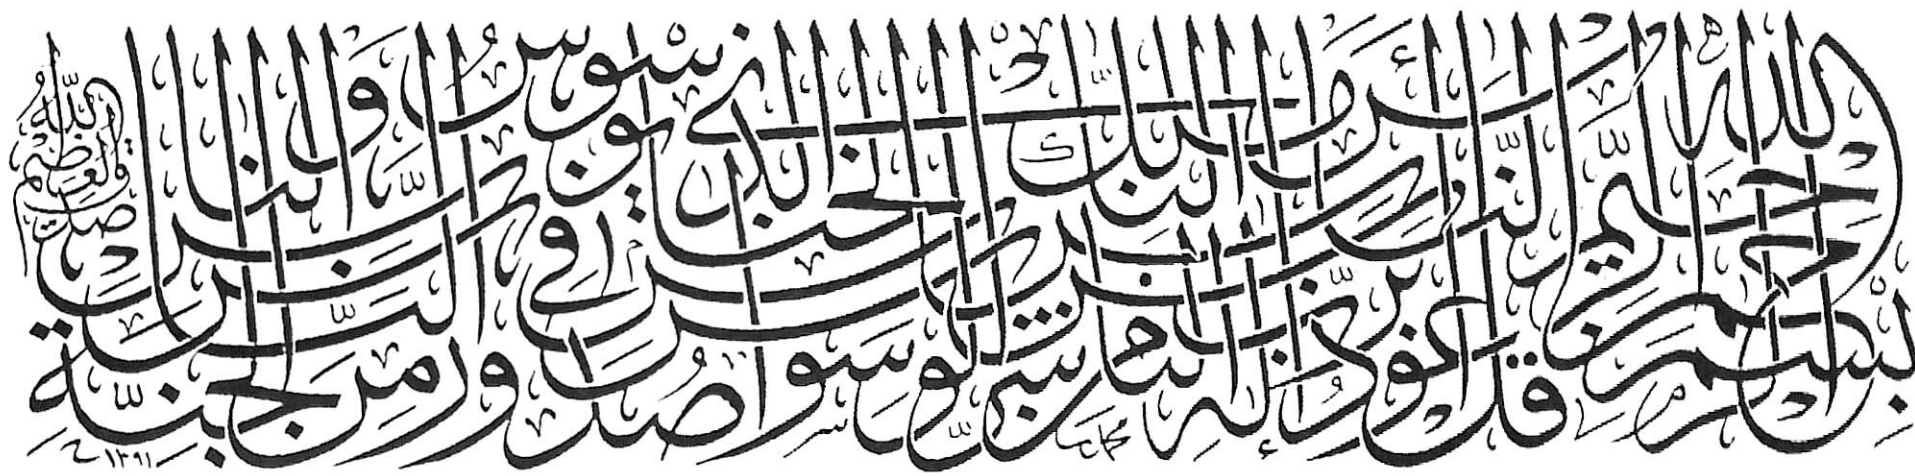 بسم الله الرحمن الرحيم
قل أعوذ برب الناس ملك الناس إله الناس من شر الوسواس الخناس الذي يوسوس في صدور الناس من الجنة والناس
صدق الله العظيم
١٣٩١